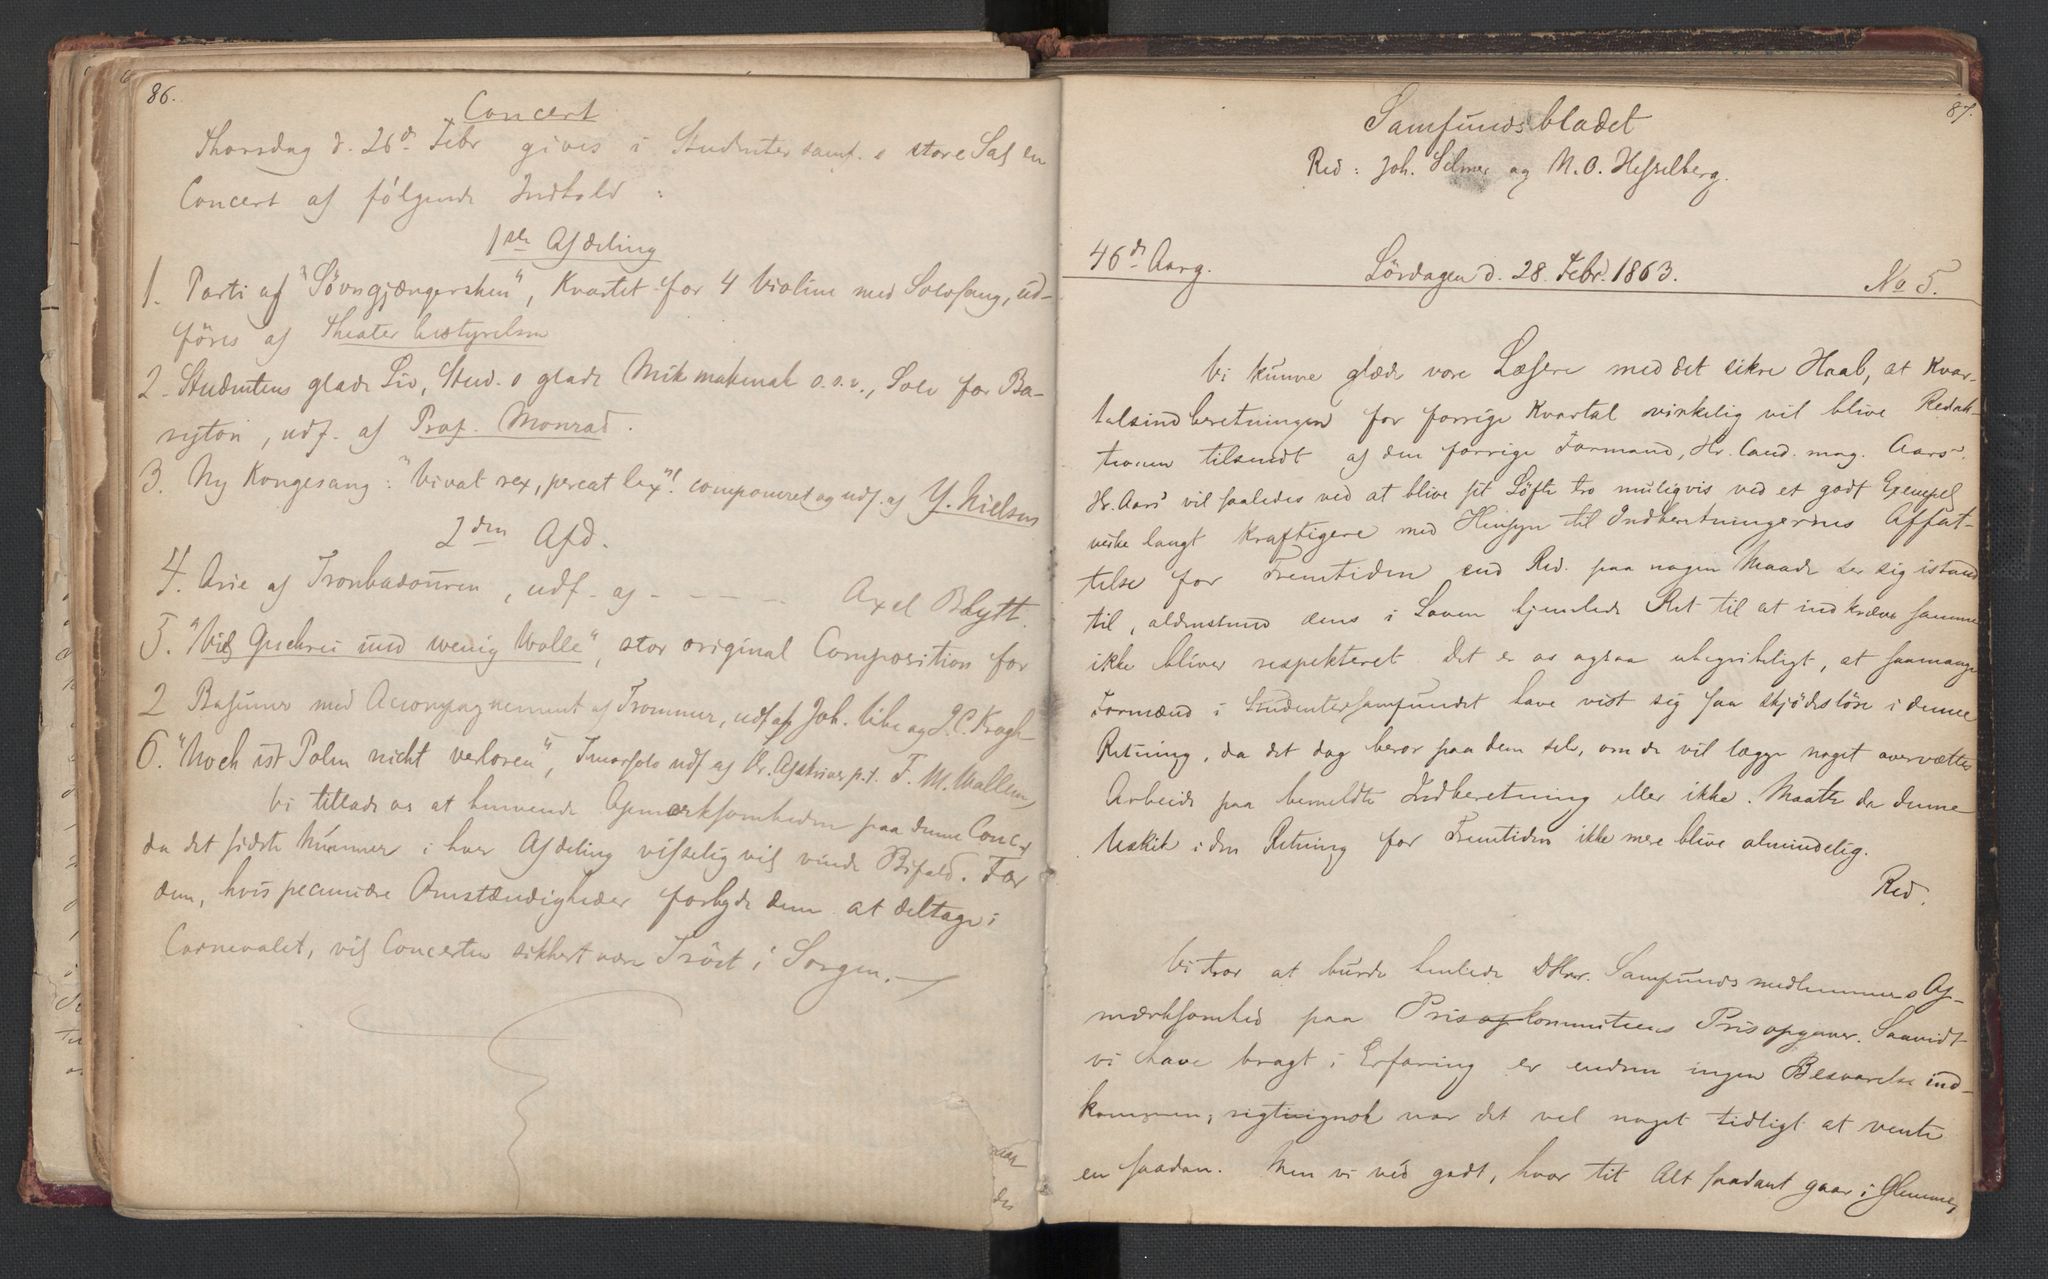 86.
Concert
Thorsdag d. 26de Febr gives i Studentersamf.s store Sal en
Concert af følgende Indhold:
1ste Afdeling
1. Parti af "Søvngjængersken", Kvartet for 4 Violine med Solosang, ud-
føres af Theaterbestyrelsen
2. Studentens glade Liv, Stud.s glade Mikmakmak o.s.v., Solo for Ba-
ryton, udf. af Prof. Monrad.
3. Ny Kongesang: "Vivat rex, pereat lex"! componeret og udf. af Y. Nielsen
2den Afd.
4. Arie af Troubadouren, udf. af - - - - Axel Blytt.
5. "Viel Geschrei und wenig Wolle", stor original Composition for
2 Basuner med Accompagnement af Trommer, udf. af Joh. Vibe og J. C. Kragh
6. "Noch ist Polen nicht verloren", Tenorsolo udf. af Hr. p.t. F. M. Wallem
Vi tillade os at henvende Opmærksomheden paa denne Concert
da det sidste Nummer i hver Afdeling visselig vil vinde Bifald. For
dem, hvis pecuniære Omstændigheder forbyde dem at deltage i
Carnevalet, vil Concerten sikkert være Trøst i Sorgen.
87.
Samfundsbladet
Red: Joh. Selmer og N. O. Hesselberg.
46de Aarg. Lördagen d. 28. Febr. 1863. No 5.
Vi kunne glæde vore Læsere med det sikre Haab, at Kvar-
talsindberetningen for forrige Kvartal virkelig vil blive Redak-
tionen tilsendt af den forrige Formand, Hr. Cand. mag. Aars.
Hr. Aars vil saaledes ved at blive sit Löfte tro muligvis ved et godt Exempel
virke langt kraftigere med Hensyn til Indberetningernes Affat-
telse for Fremtiden end Red. paa nogen Maade ser sig istand
til, aldenstund dens i Loven hjemlede Ret til at indkræve samme
ikke bliver respekteret. Det er os ogsaa ubegribeligt, at saamange
Formænd i Studentersamfundet have vist sig saa skjödeslöse i denne
Retning, da det dog beror paa dem selv, om de vil lægge noget overvættes
Arbeide paa bemeldte Indberetning eller ikke. Maatte da denne
Uskik i den Retning for Fremtiden ikke mere blive almindelig.
Red.
Vi tror at burde henlede DHrr. Samfundsmedlemmers Op-
mærksomhed paa Prisopkommiteens Prisopgaver. Saavidt
vi have bragt i Erfaring er endnu ingen Besvarelse ind-
kommen; rigtignok var det vel noget tidligt at vente
en saadan. Men vi véd godt, hvor tit Alt saadant gaar i Glemme,